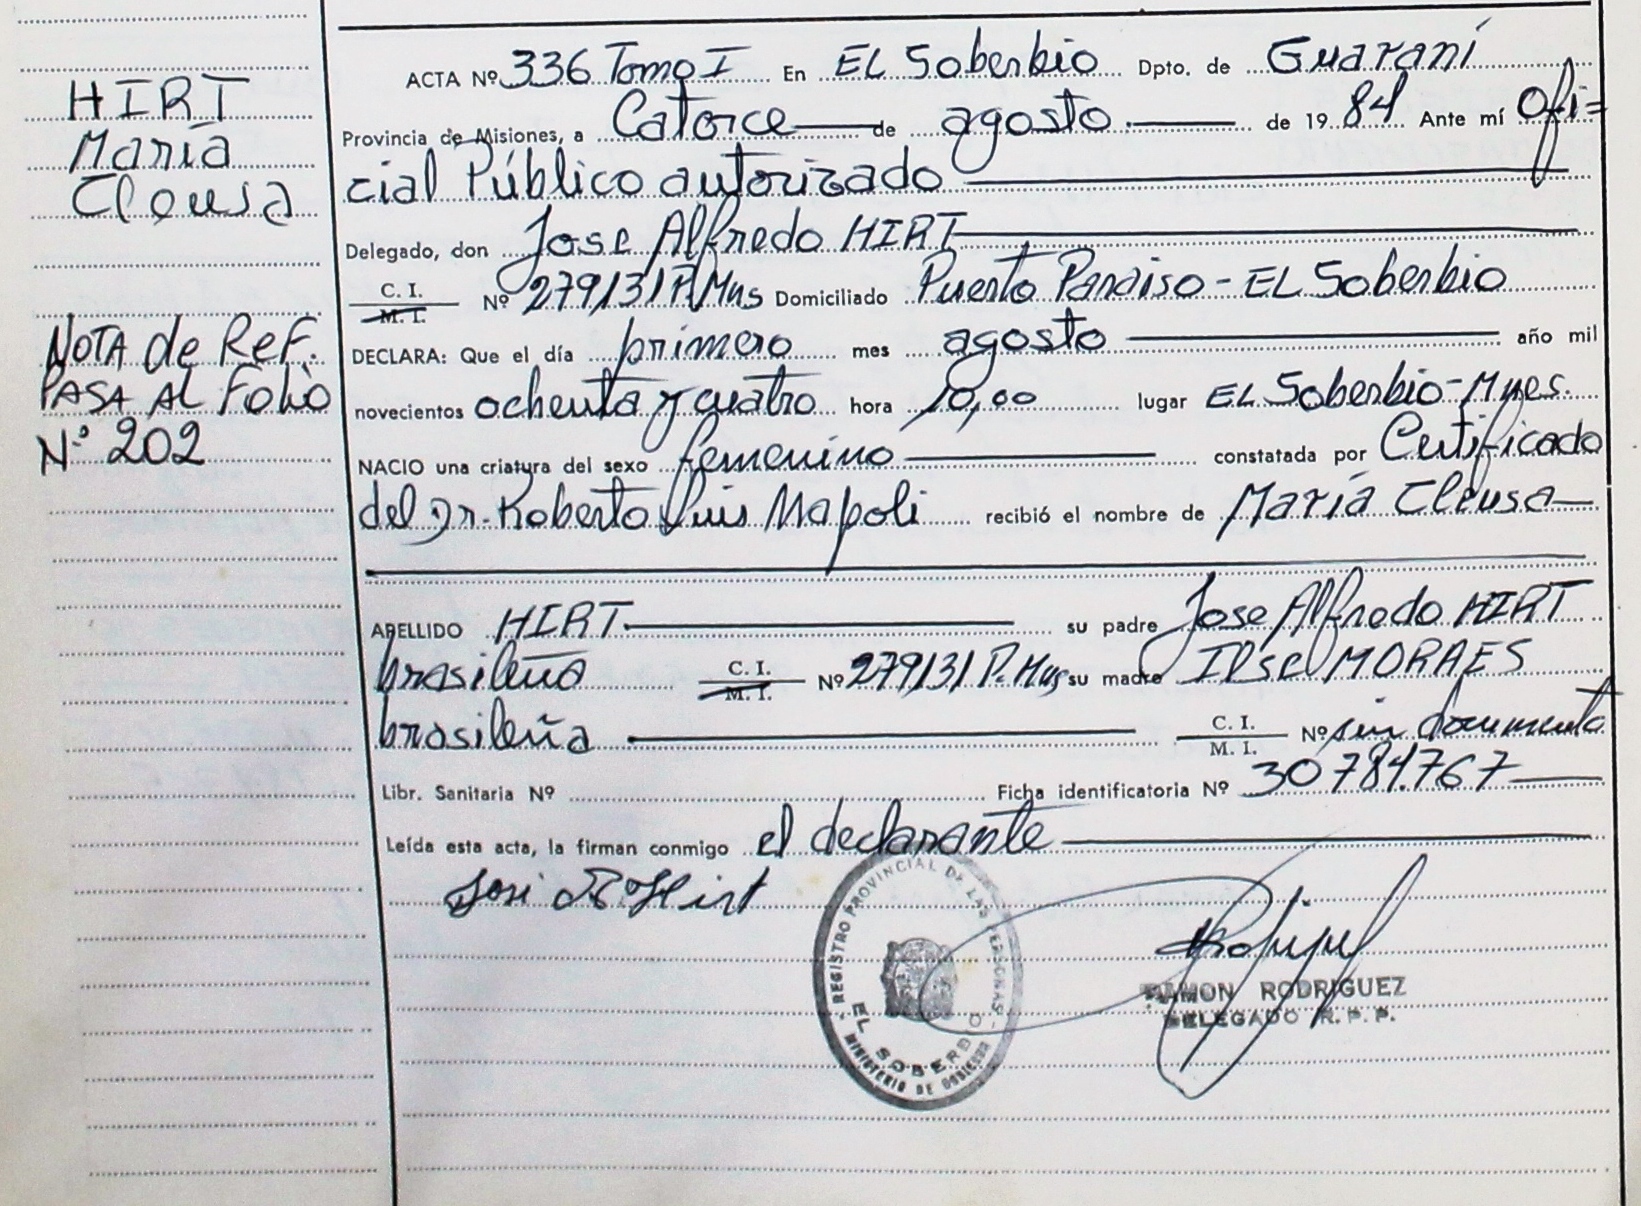 HIRT
María
Cleusa
NOTA de REF.
PASA AL Folio
Nº 202
ACTA Nº 336 Tomo I En EL Soberbio Dpto. de Guaraní
Provincia de Misiones, a Catorce de agosto de 1984 Ante mí Ofi=
cial Público autorizado
Delegado, don Jose Alfredo HIRT
C. I.
M. I.
Nº 279131 P. Mns Domiciliado Puerto Paraiso - EL Soberbio
DECLARA: Que el día primero mes agosto año mil
novecientos ochenta y cuatro hora 10,00 lugar EL Soberbio - Mnes.
NACIO una criatura del sexo femenino constatada por Certificado
del Dr. Roberto Luis Napoli recibió el nombre de María Cleusa
APELLIDO HIRT su padre Jose Alfredo HIRT
brasileño C. I. Nº 279131 P. Mns su madre Ilse MORAES
M. I.
brasileña C. I. Nº sin documento
M. I.
Libr. Sanitaria Nº Ficha identificatoria Nº 30784.767
Leída esta acta, la firman conmigo el declarante
José A. Hirt
REGISTRO PROVINCIAL DE LAS PERSONAS
EL SOBERBIO
MINISTERIO DE GOBIERNO
RAMON RODRIGUEZ
DELEGADO R. P. P.